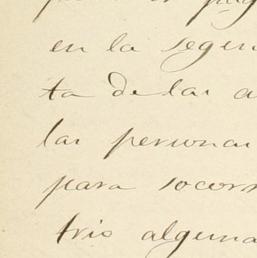 en la segun
ta de las a
las personas
para socorr
tris alguna